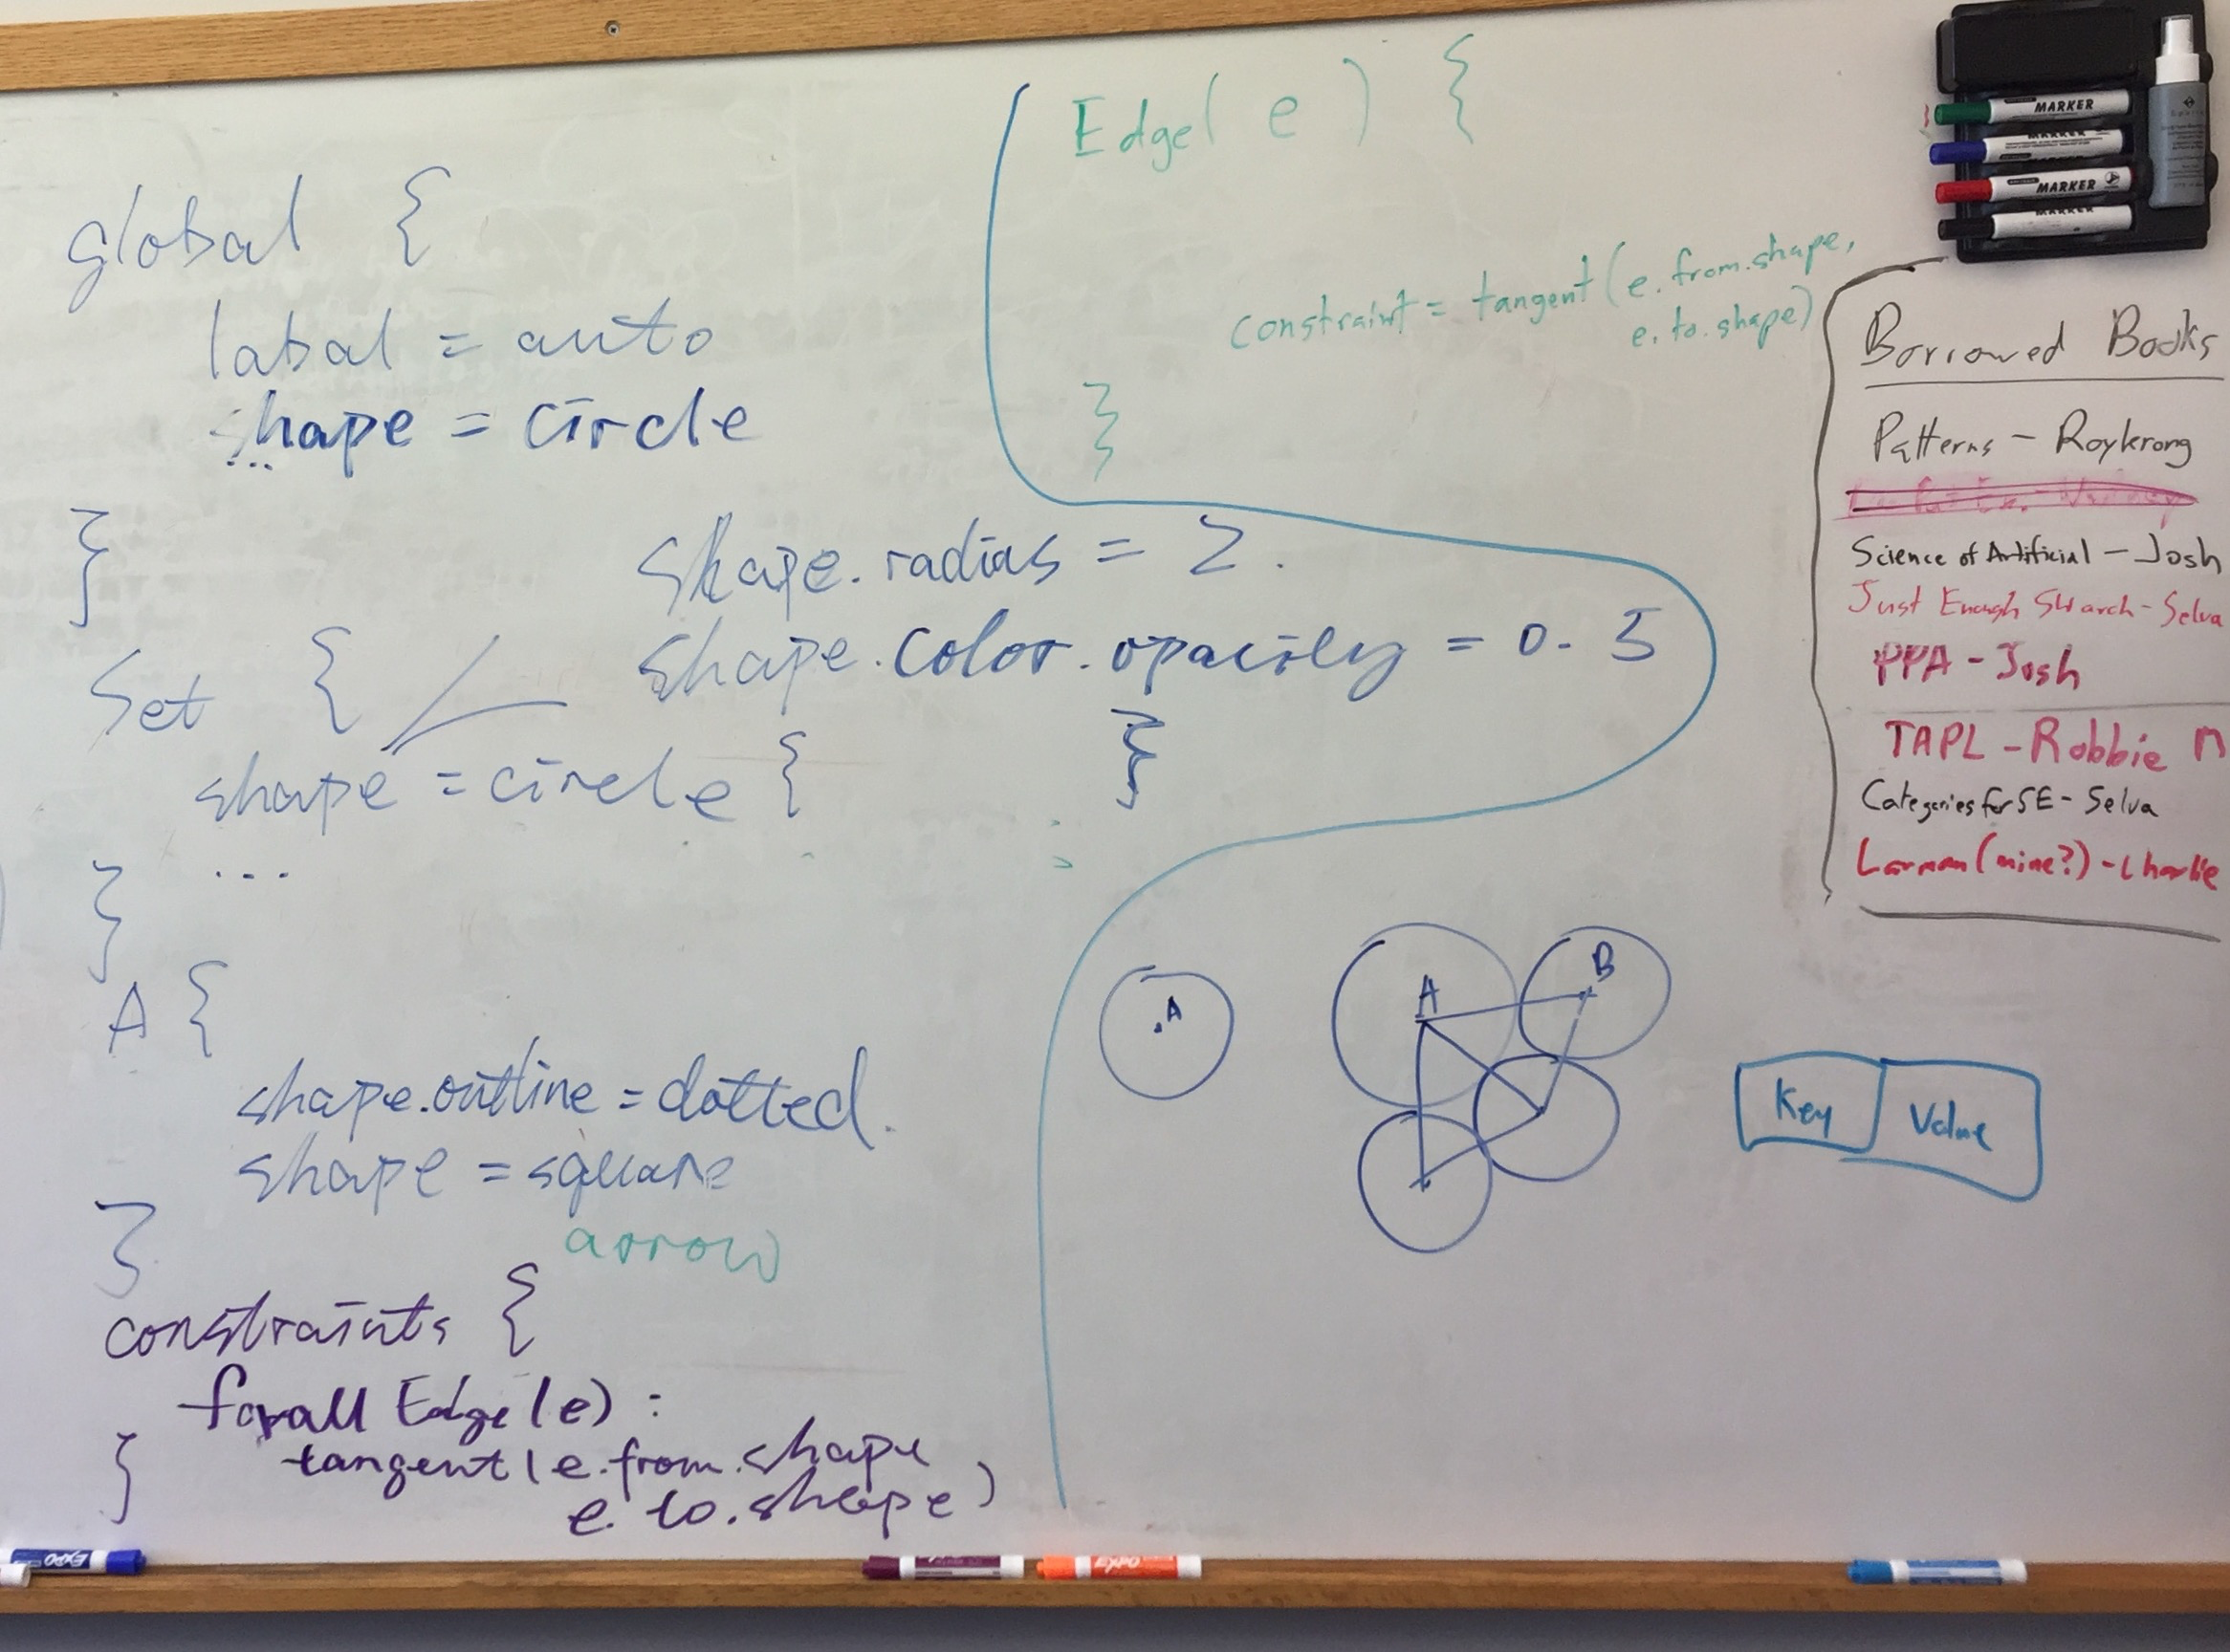 global {
labal = auto
shape = circle
...
}
Set {
shape = circle {
shape.radius = 2.
shape.color.opacity = 0.5
}
...
}
A {
shape.outline = dotted.
shape = square
arrow
}
constraints {
forall Edge(e) :
tangent(e.from.shape
e.to.shape)
}
Edge( e ) {
constraint = tangent(e.from.shape,
e.to.shape)
}
A
A
B
Key
Value
MARKER
MARKER
MARKER
MARKER
Borrowed Books
Patterns - Roykrong
Science of Artificial - Josh
Just Enough SW arch - Selva
PPA - Josh
TAPL - Robbie
Categories for SE - Selva
Larman (mine?) - Charlie
EXPO
EXPO